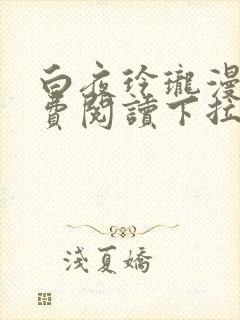 白夜玲瓏漫
費閱讀下拉
淺夏嬌